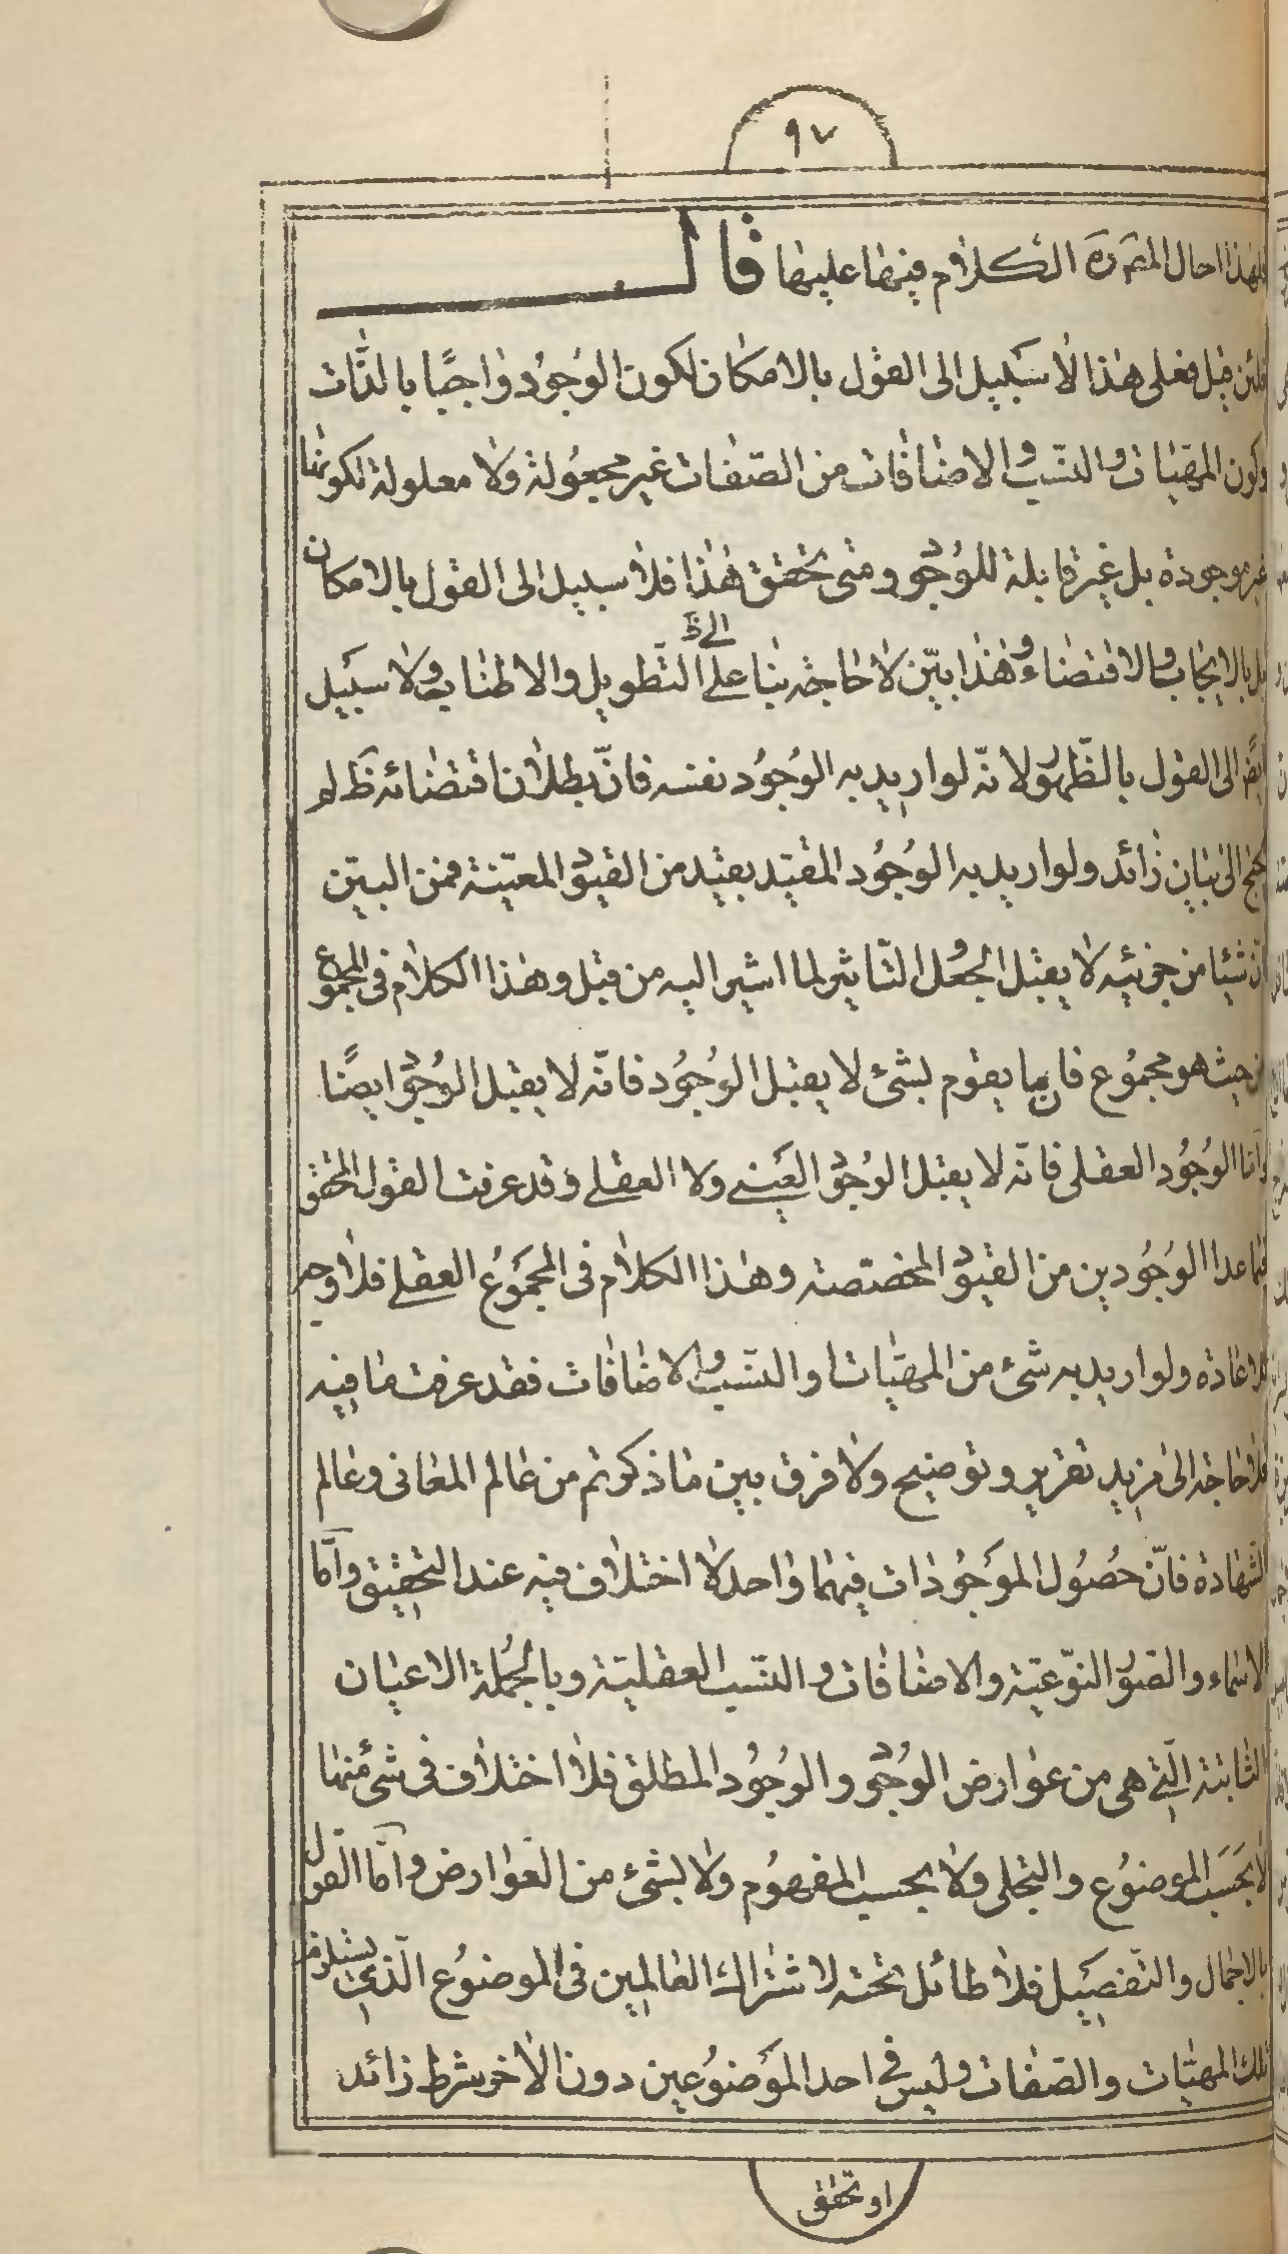 ٩٧
فلهذا احال المصنف ره الكلام فيها عليها قال
فلئن قيل فعلى هذا لا سبيل الى القول بالامكان لكون الوجود واجبًا بالذّات
وكون المهيّات والنسب والاضافات من الصّفات غير مجعولة ولا معلولة لكونها
غير موجودة بل غير قابلة للوجود ومتى تحقق هذا فلا سبيل الى القول بالامكان
بل بالايجاب والاقتضاء وهذا بيّن لا حاجة بنا على التّطويل والاطناب ولا سبيل
الى ظ
ايضً الى القول بالظّهور لانّه لو اريد به الوجود نفسه فانّ بطلان اقتضائه ظ لم
يحتج الى بيان زائد ولو اريد به الوجود المقيّد بقيد من القيود المعيّنة فمن البيّن
انّ شيئا من جزئيه لا يقبل الجعل والتّاثير لما اشير اليه من قبل وهذا الكلام فى المجموع
من حيث هو مجموع فان ما يقوم بشئ لا يقبل الوجود فانّه لا يقبل الوجود ايضًا
وامّا الوجود العقلى فانّه لا يقبل الوجود العينى ولا العقلى وقد عرفت القول المحقق
فيما عدا الوجودين من القيود المخصّصة وهذا الكلام فى المجموع العقلى فلا وجه
للاعادة ولو اريد به شئ من المهيّات او النسب والاضافات فقد عرفت ما فيه
فلا حاجة الى مزيد تقرير وتوضيح ولا فرق بين ما ذكرتم من عالم المعانى وعالم
الشهادة فانّ حصول الموجودات فيهما واحد لا اختلاف فيه عند التحقيق وامّا
الاسماء والصّور النّوعيّة والاضافات والنسب العقليّة وبالجملة الاعيان
الثابتة الّتى هى من عوارض الوجود والوجود المطلق فلا اختلاف فى شئ منها
لا بحسب الموضوع والتجلى ولا بحسب المفهوم ولا لشئ من العوارض وامّا القول
بالاجمال والتّفصيل فلا طائل تحته لاشتراك العالمين فى الموضوع الّذى يستلزم
تلك المهيّات والصّفات وليس فى احد الموضوعين دون الاخر شرط زائد
او تحقق